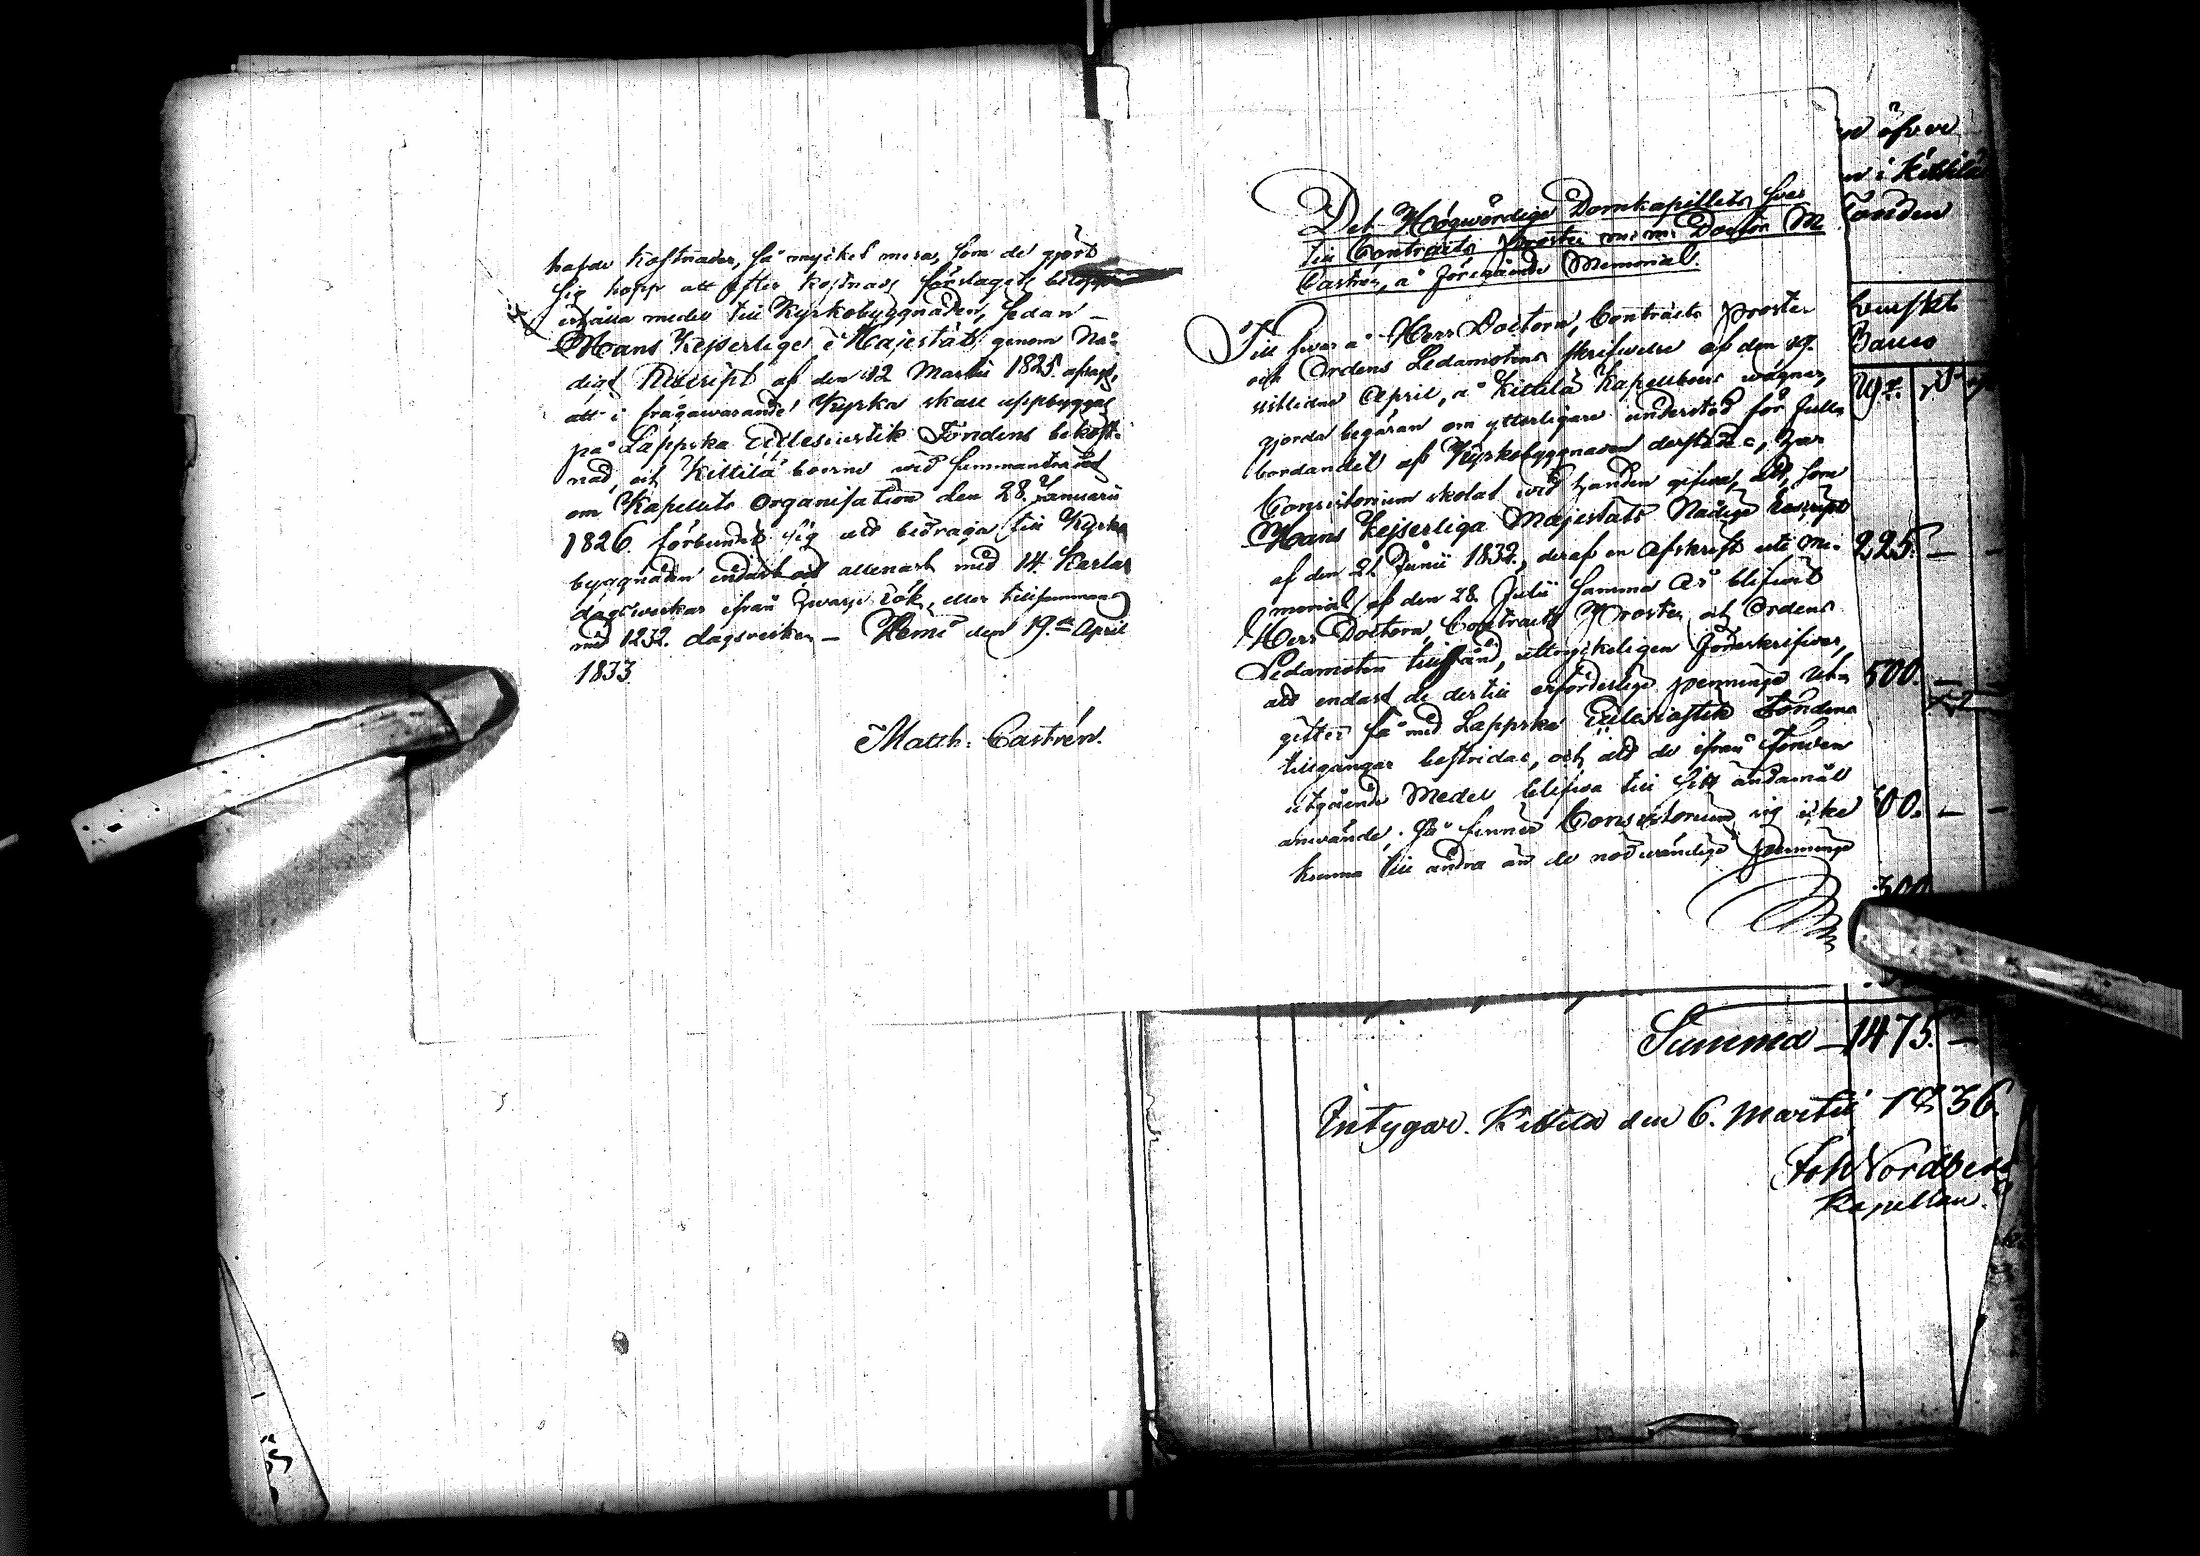 hafde kostnader, så mycket mera, som de gjort
sig hopp att efter kostnads förslagets belopp
erhålla medel till Kyrkobyggnaden, sedan
Hans Kejserlige Majestät genom Nå-
digt Rescript af den 12 Martii 1825 afsagt,
att i frågawarande Kyrka skall uppbyggas
på Lappska Ecclesiastik Fondens bekost-
nad, och Kittilä boerne wid sammanträdet
om Kapellets Organisation den 28. Januarii
1826 förbundit sig att bidraga till Kyrko
byggnaden endast och allenast med 14 Karlar
dagswerken ifrån hwarje rök, eller tillsammans
med 1232 dagsverken – Kemi den 19.de April
1833
Matth. Castrén.
Det Högwördige Domkapitlets swar
till Contracts Prosten m.m. Doctor M
Castrén, å föregående Memorial.
Till swar å Herr Doctorn, Contracts Prosten
och Ordens Ledamotens skrifwelse af den 19.
sistlidne April, å Kittilä Kapellboers wägnar,
gjorda begäran om ytterligare understöd för full-
bordandet af Kyrkobyggnaden derstädes, har
Consistorium skolat wid handen gifwa, att, som
Hans Kejserliga Majestäts Nådige Rescript
af den 21 Junii 1832, deraf en Afskrift uti Me-
morial af den 28. Julii samma År blifwit
Herr Doctorn, Contracts Prosten och Ordens
Ledamoten tillsänd, uttryckeligen föreskrifwer,
att endast de dertill erforderlige penninge ut-
gifter få med Lappska Ecclesiastik Fondens
tillgångar bestridas, och att de ifrån fonden
utgående Medel blifwa till sitt ändamål
använde; Så finner Consistorium sig icke
kunna till andra än de nödwändige penninge
öfver
i Kittilä
fonden
Banco
225. –
500. –
00. –
300
Summa – 1475. –
Intygar. Kittilä den 6. Martii 1836.
Joh Nordberg
Kapellan.